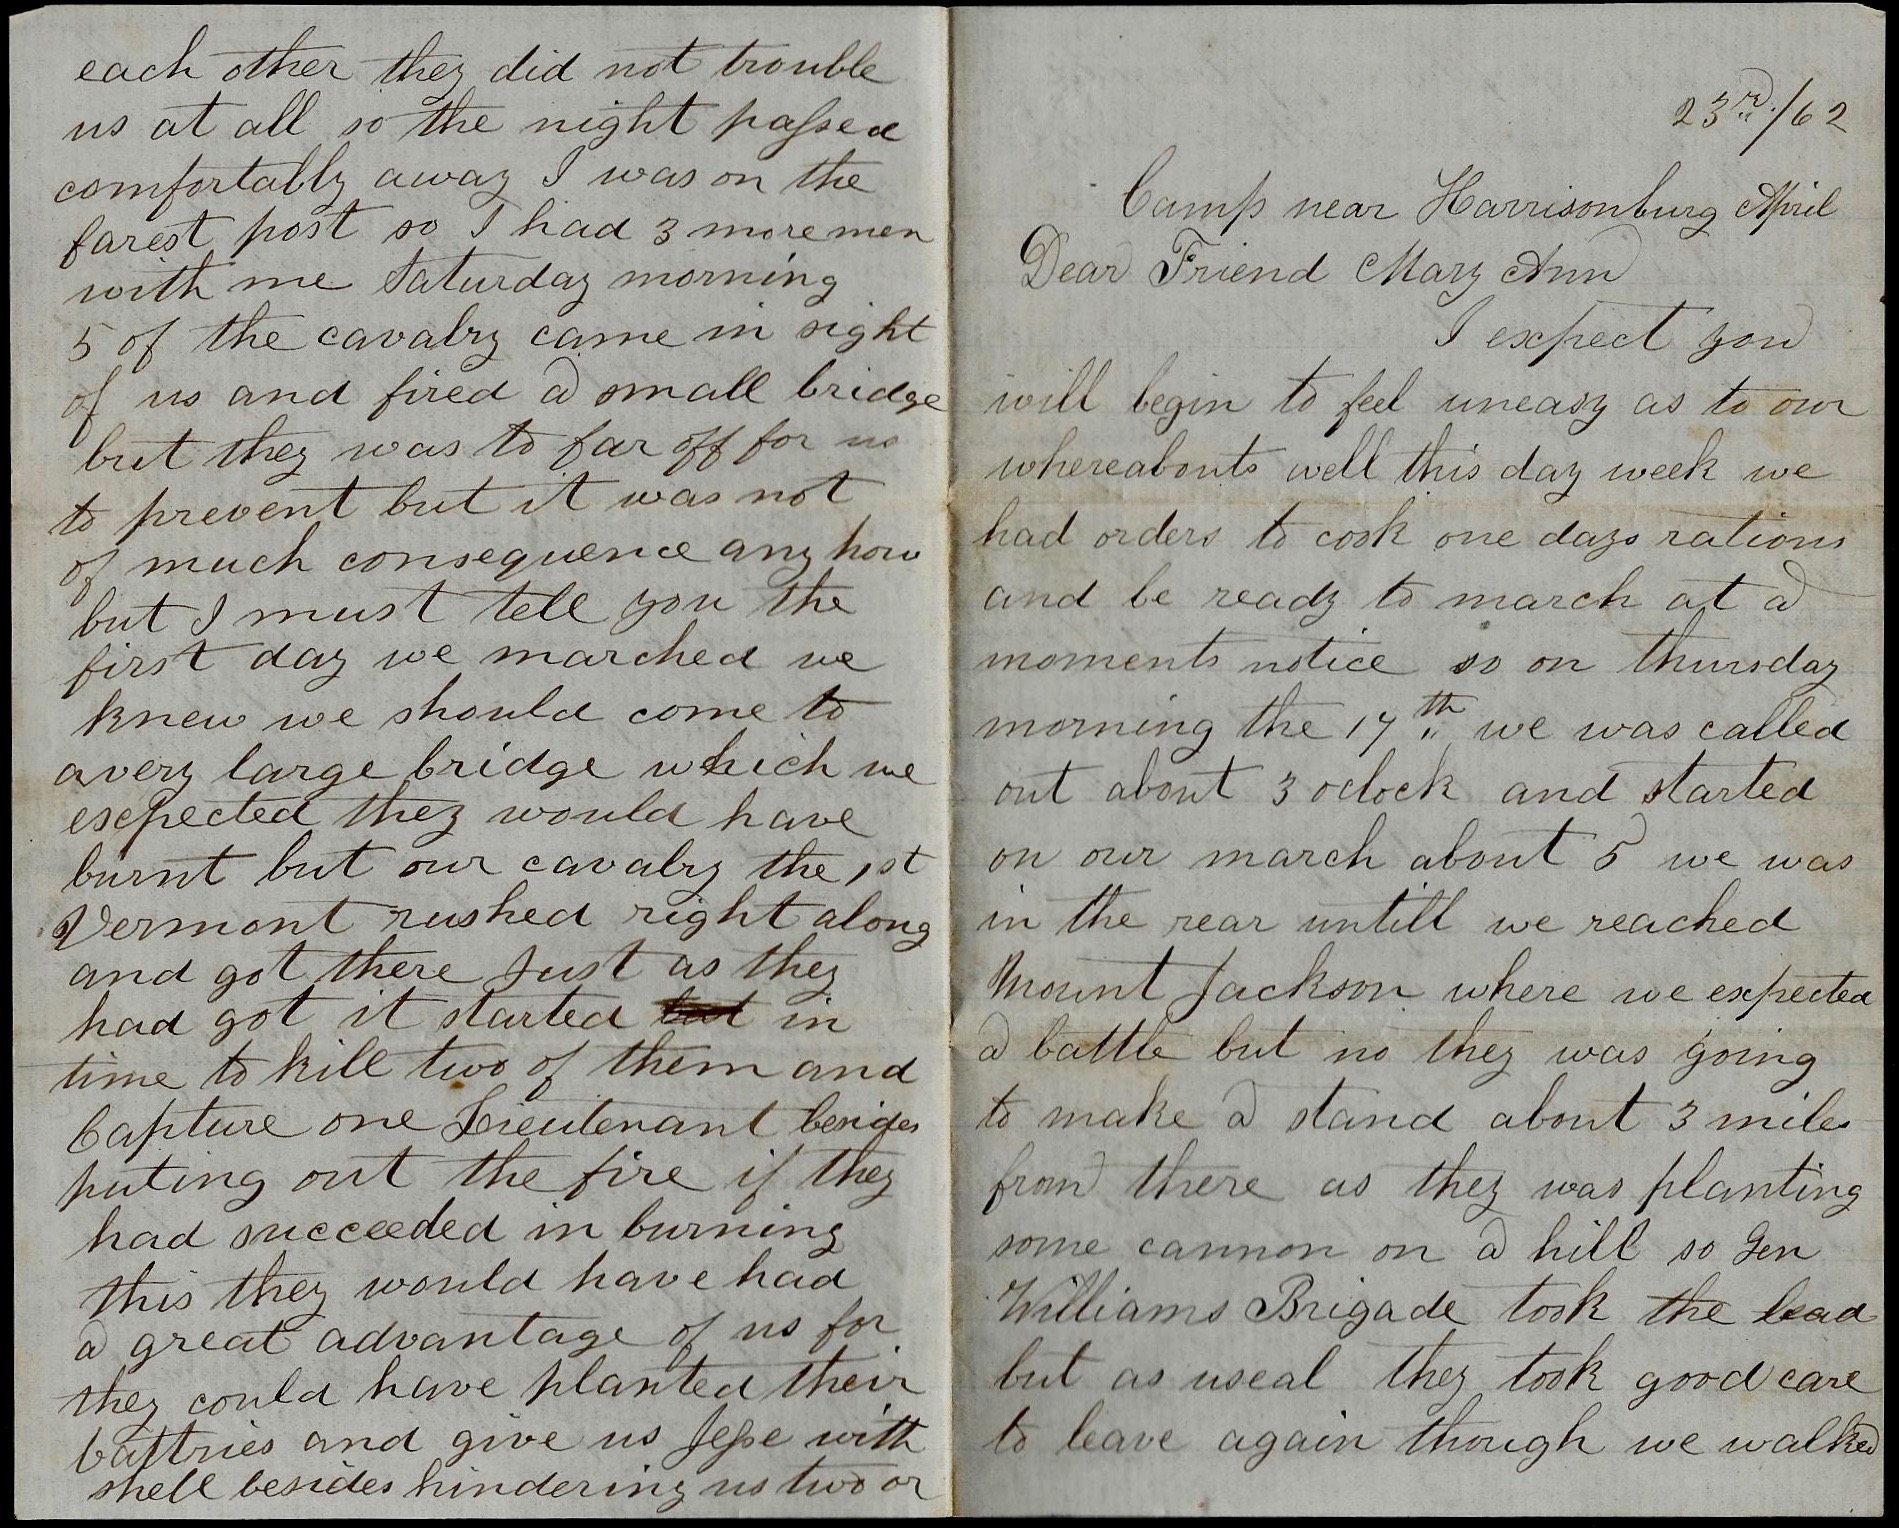 each other they did not trouble
us at all so the night passed
comfortably away I was on the
farest post so I had 3 more men
with me Saturday morning
5 of the cavalry came in sight
of us and fired a small bridge
but they was to far off for us
to prevent but it was not
of much consequence any how
but I must tell you the
first day we marched we
knew we should come to
a very large bridge which we
expected they would have
burnt but our cavalry the 1st
Vermont rushed right along
and got there Just as they
had got it started in
time to kill two of them and
Capture one Lieutenant besides
puting out the fire if they
had succeeded in burning
this they would have had
a great advantage of us for
they could have planted their
battries and give us Jesse with
shell besides hindering us two or
23rd/62
Camp near Harrisonburg April
Dear Friend Mary Ann
I expect you
will begin to feel uneasy as to our
whereabouts well this day week we
had orders to cook one days rations
and be ready to march at a
moments notice so on thursday
morning the 17th we was called
out about 3 oclock and started
on our march about 5 we was
in the rear untill we reached
Mount Jackson where we expected
a battle but no they was going
to make a stand about 3 miles
from there as they was planting
some cannon on a hill so Gen
Williams Brigade took the lead
but as useal they took good care
to leave again though we walked